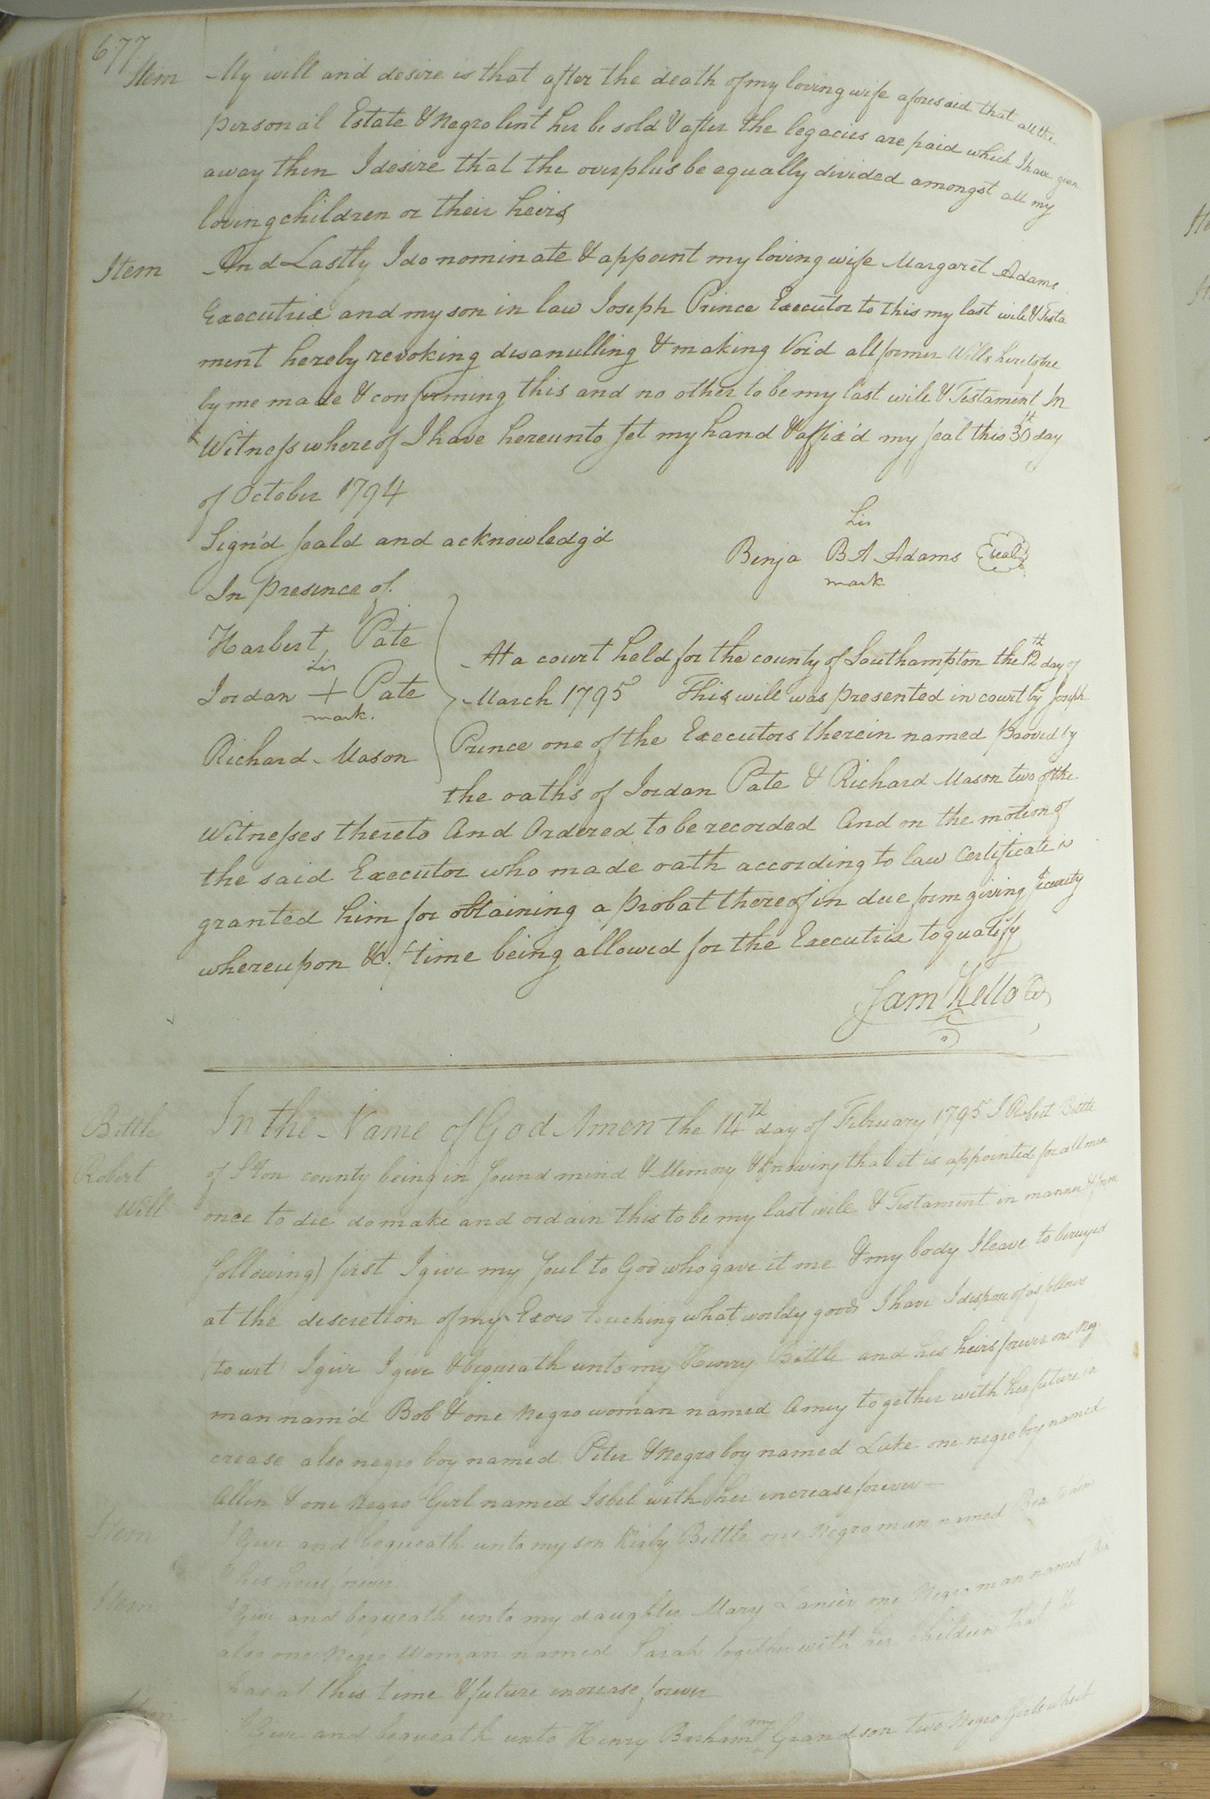 677
Item My will and desire is that after the death of my loving wife aforesaid that all the
personal Estate & Negro lent her be sold & after the legacies are paid which I have given
away then I desire that the overplus be equally divided amongst all my
loving children or their heirs
Item And Lastly I do nominate & appoint my loving wife Margaret Adams
Executrix and my son in law Joseph Prince Executor to this my last will & Testa
ment hereby revoking disanulling & making Void all former Wills heretofore
by me made & confirming this and no other to be my last will & Testament In
Witness whereof I have hereunto set my hand & affix'd my seal this 30th day
of October 1794
Sign'd seald and acknowledg'd
In Presence of
his
Benja B A Adams Seal
mark
Harbert Pate
his
Jordan + Pate
mark.
Richard Mason
At a court held for the county of Southampton the 12th day of
March 1795 This will was presented in court by Joseph
Prince one of the Executors therein named Proved by
the oaths of Jordan Pate & Richard Mason two of the
Witnesses thereto And Ordered to be recorded And on the motion of
the said Executor who made oath according to law Certificate is
granted him for obtaining a probat thereof in due form giving Security
whereupon &c. time being allowed for the Executrix to qualify
Sam Kello
Bittle
Robert
Will
In the Name of God Amen the 14th day of February 1795 I Robert Bittle
of S'ton county being in sound mind & Memory & knowing that it is appointed for all men
once to die do make and ordain this to be my last will & Testament in manner & form
following) first I give my soul to God who gave it me & my body I leave to be buryed
at the discretion of my Exors touching what worldy goods I have I dispose of as follows
(to wit) I give I give & bequeath unto my Henry Bittle and his heirs forever one Neg
man nam'd Bob & one Negro woman named Amey together with her future in
crease also negro boy named Peter & Negro boy named Luke one negro boy named
Allen & one Negro Girl named Isbel with her increase forever
Item I Give and bequeath unto my son Kirby Bittle one Negro man named
& his heirs forever
Item I Give and bequeath unto my daughter Mary Lanier one Negro man named
also one Negro Woman named Sarah together with her children that
has at this time & future increase forever
Item I Give and bequeath unto Henry Barham my Grandson two Negro Girls which